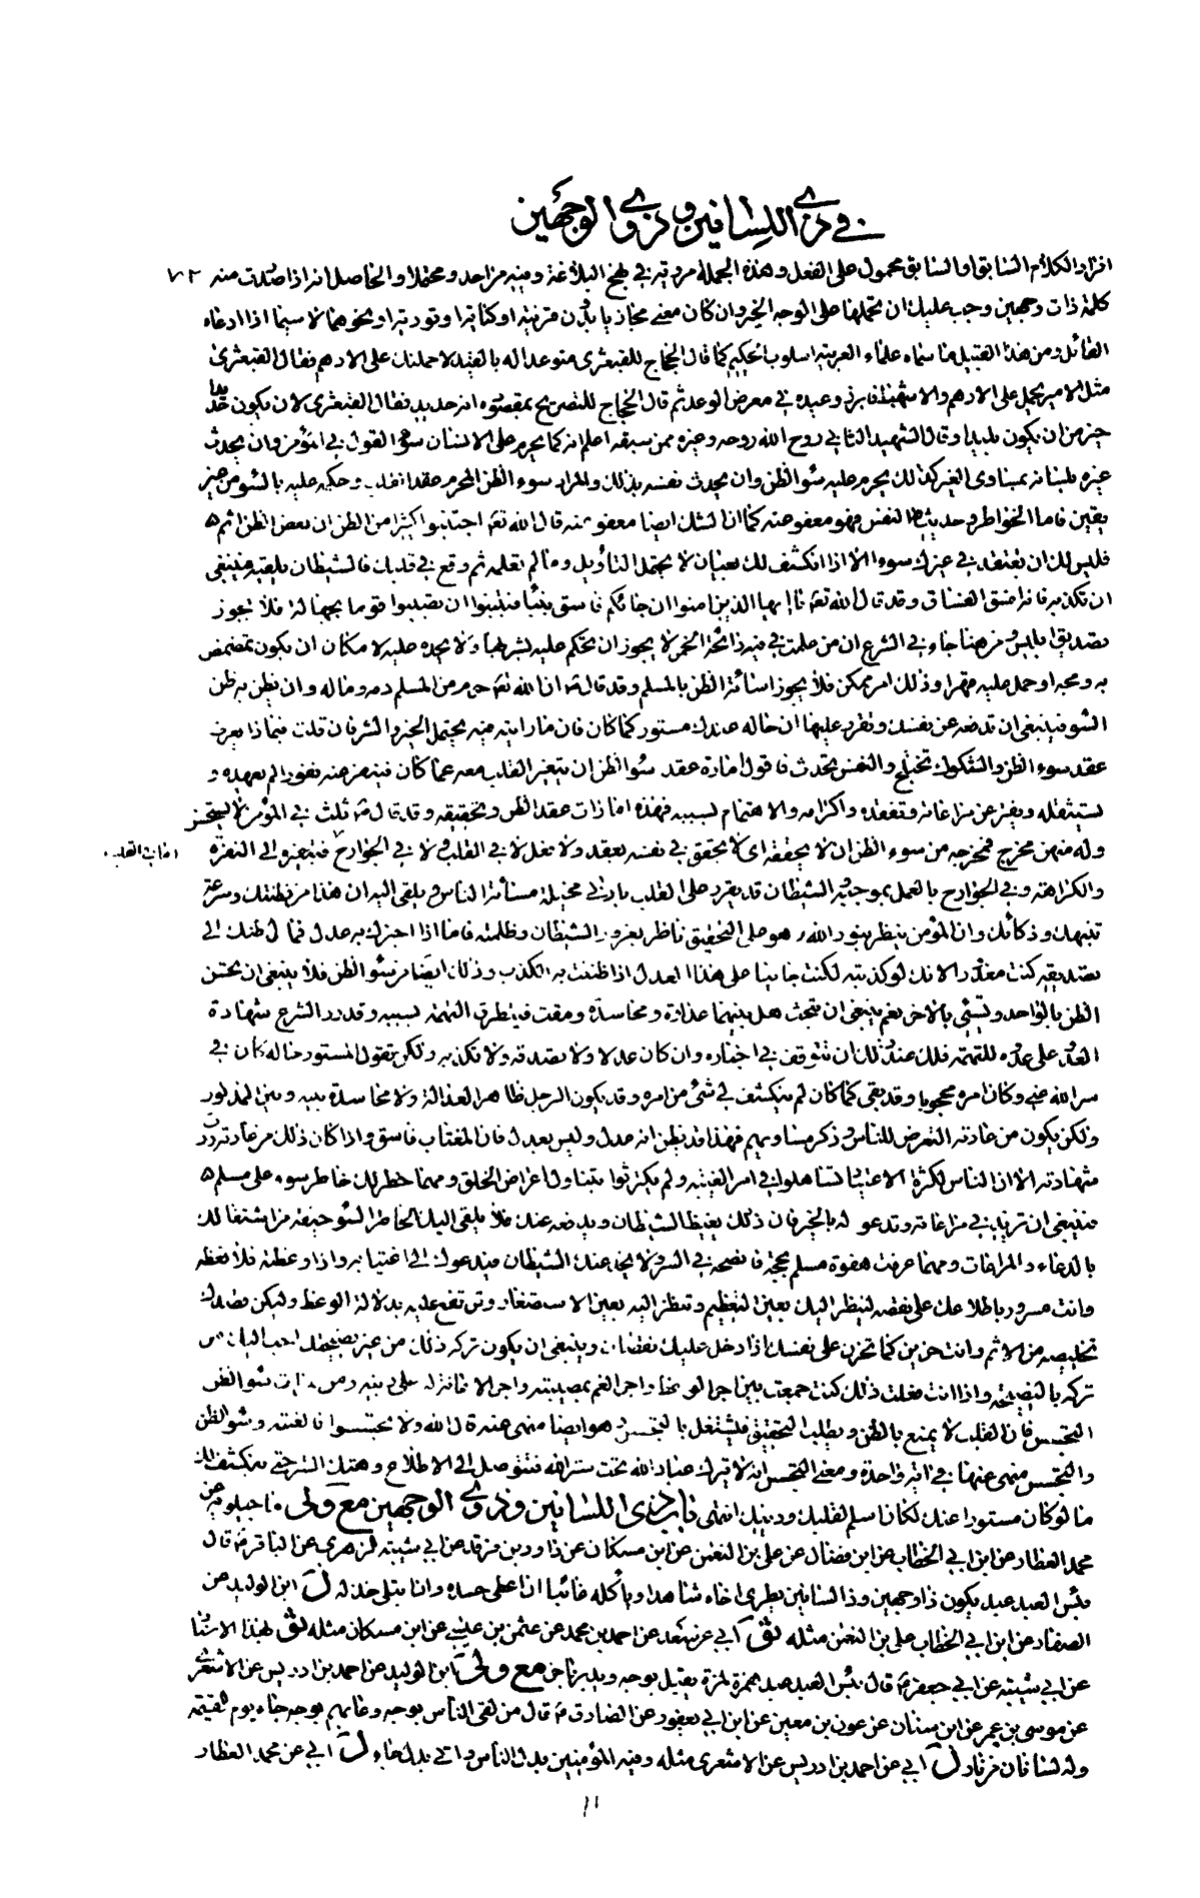 في ذي اللسانين وذي الوجهين
افراد الكلام السابق او السابق محمول على الفعل وهذه الجملة مروية في نهج البلاغة وفيه من احد ومحتملا والحاصل انه اذا صدرت منه ٧٢
كلمة ذات وجهين وجب عليك ان تحملها على الوجه الخير وان كان معنى مجازيا بدون قرينة او كناية او تورية او نحوهما لا سيما اذا ادعاه
القائل ومن هذا القبيل ما سماه علماء العربية اسلوب الحكيم كما قال الحجاج للقبعثرى متوعدا له بالقيد لاحملنك على الادهم فقال القبعثرى
مثل الامير يحمل على الادهم والاشهب فابرز وعيده في معرض الوعد ثم قال الحجاج للتصريح بمقصوده انه حديد فقال القبعثرى لان يكون حديدا
خير من ان يكون بليدا وقال الشهيد الثاني روح الله روحه وغيره ممن سبقه اعلم انه كما يحرم على الانسان سوء القول في المؤمن وان يحدث
غيره بلسانه بمساوى الغير كذلك يحرم عليه سوء الظن وان يحدث نفسه بذلك والمراد بسوء الظن المحرم عقد القلب وحكمه عليه بالسوء من غير
يقين فاما الخواطر وحديث النفس فهو معفو عنه كما ان الشك ايضا معفو عنه قال الله تعه اجتنبوا كثيرا من الظن ان بعض الظن اثم
فليس لك ان تعتقد في غيرك سوءا الا اذا انكشف لك بعيان لا يحتمل التأويل وما لم تعلمه ثم وقع في قلبك فالشيطان يلقيه فينبغي
ان تكذبه فانه افسق الفساق وقد قال الله تعه يا ايها الذين امنوا ان جاءكم فاسق بنبأ فتبينوا ان تصيبوا قوما بجهالة فلا يجوز
تصديق ابليس ومن هنا جاء في الشرع ان من علمت في فيه رائحة الخمر لا يجوز ان تحكم عليه بشربها ولا يحده عليه لامكان ان يكون تمضمض
به ومجه او حمل عليه قهرا وذلك امر ممكن فلا يجوز اسائة الظن بالمسلم وقد قال ص ان الله تعه حرم من المسلم دمه وماله وان يظن به ظن
السوء فينبغي ان تدفعه عن نفسك وتقرر عليها ان حاله عندك مستور كما كان فان ما رايته فيه يحتمل الخير والشر فان قلت فبماذا يعرف
عقد سوء الظن والشكوك تختلج والنفس تحدث فاقول امارة عقد سوء الظن ان يتغير القلب معه عما كان فينفر عنه نفورا لم يعهده و
يستثقله ويفتر عن مراعاته وتفقده واكرامه والاهتمام بسببه فهذه امارات عقد الظن وتحقيقه وقد قال ص ثلث في المؤمن لا يستحسن
وله منهن مخرج فمخرجه من سوء الظن ان لا يحققه اي لا يحقق في نفسه بعقد ولا فعل لا في القلب ولا في الجوارح فتغيره الى النفرة
اما في القلب
والكراهة وفي الجوارح بالعمل بموجبه والشيطان قد يقرر على القلب بادنى مخيلة مساءة الناس ويلقى اليه ان هذا من فطنتك وسرعة
تنبهك وذكائك وان المؤمن ينظر بنور الله وهو على التحقيق ناظر بغرور الشيطان وظلمته فاما اذا اخبرك به عدل فمال ظنك الى
تصديقه كنت معذورا لانك لو كذبته لكنت جانيا على هذا العدل اذا ظننت به الكذب وذلك ايضا من سوء الظن فلا ينبغي ان تحسن
الظن بالواحد وتسيئ بالاخر نعم ينبغي ان تبحث هل بينهما عداوة ومحاسدة ومقت فيتطرق التهمة بسببه وقد رد الشرع شهادة
العدو على عدوه للتهمة فلك عند ذلك ان تتوقف في اخباره وان كان عدلا ولا تصدقه ولا تكذبه ولكن تقول المستور حاله كان في
سر الله عني وكان امره محجوبا وقد بقي كما كان لم ينكشف لي شئ من امره وقد يكون الرجل ظاهر العدالة ولا محاسدة بينه وبين المذكور
ولكن يكون من عادته التعرض للناس وذكر مساويهم فهذا قد يظن انه عدل وليس بعدل فان المغتاب فاسق واذا كان ذلك من عادته ردت
شهادته الا ان الناس لكثرة الاعتياد تساهلوا في امر الغيبة ولم يكترثوا بتناول اعراض الخلق ومهما خطر لك خاطر سوء على مسلم
فينبغي ان تزيد في مراعاته وتدعو له بالخير فان ذلك يغيظ الشيطان ويدفعه عنك فلا يلقى اليك الخاطر السوء خيفة من اشتغالك
بالدعاء والمراعات ومهما عرفت هفوة مسلم بحجة فانصحه في السر ولا يخدعنك الشيطان فيدعوك الى اغتيابه واذا وعظته فلا تعظه
وانت مسرور باطلاعك على نقصه لينظر اليك بعين التعظيم وتنظر اليه بعين الاستصغار وترتفع عليه بدلالة الوعظ وليكن قصدك
تخليصه من الاثم وانت حزين كما تحزن على نفسك اذا دخل عليك نقصان وينبغي ان يكون تركه ذلك من غير نصيحتك احب اليك من
تركه بالنصيحة واذا انت فعلت ذلك كنت جمعت بين اجر الوعظ واجر الغم بمصيبته واجر الاعانة له على دينه ومن ثمرات سوء الظن
التجسس فان القلب لا يقنع بالظن ويطلب التحقيق فيشتغل بالتجسس وهو ايضا منهي عنه قال الله ولا تجسسوا فالغيبة وسوء الظن
والتجسس منهي عنها في اية واحدة ومعنى التجسس انه لا تترك عباد الله تحت ستر الله فتتوصل الى الاطلاع وهتك الستر حتى ينكشف لك
ما لو كان مستورا عنك لكان اسلم لقلبك ودينك انتهى باب ذي اللسانين وذي الوجهين مع ولي ماجيلويه عن
محمد العطار عن ابن ابي الخطاب عن ابن فضال عن علي بن النعمن عن ابن مسكان عن داود بن فرقد عن ابي شيبة الزهري عن الباقر ع قال
بئس العبد عبد يكون ذا وجهين وذا لسانين يطري اخاه شاهدا ويأكله غائبا ان اعطي حسده وان ابتلي خذله ل ابن الوليد عن
الصفار عن ابن ابي الخطاب علي بن النعمن مثله ثو ابي عن سعد عن احمد بن محمد عن عثمن بن عيسى عن ابن مسكان مثله ثو بهذا الاسناد
عن ابي شيبة عن ابي جعفر ع قال بئس العبد عبد همزة لمزة يقبل بوجه ويدبر باخر مع ولي ابن الوليد عن احمد بن ادريس عن الاشعري
عن موسى بن عمر عن ابن سنان عن عون بن معين عن ابن ابي يعفور عن الصادق ع قال من لقى الناس بوجه وعابهم بوجه جاء يوم القيمة
وله لسانان من نار ل ابي عن احمد بن ادريس عن الاشعري مثله وفيه المؤمنين بدل الناس واتى بدل جاء ل ابي عن محمد العطار